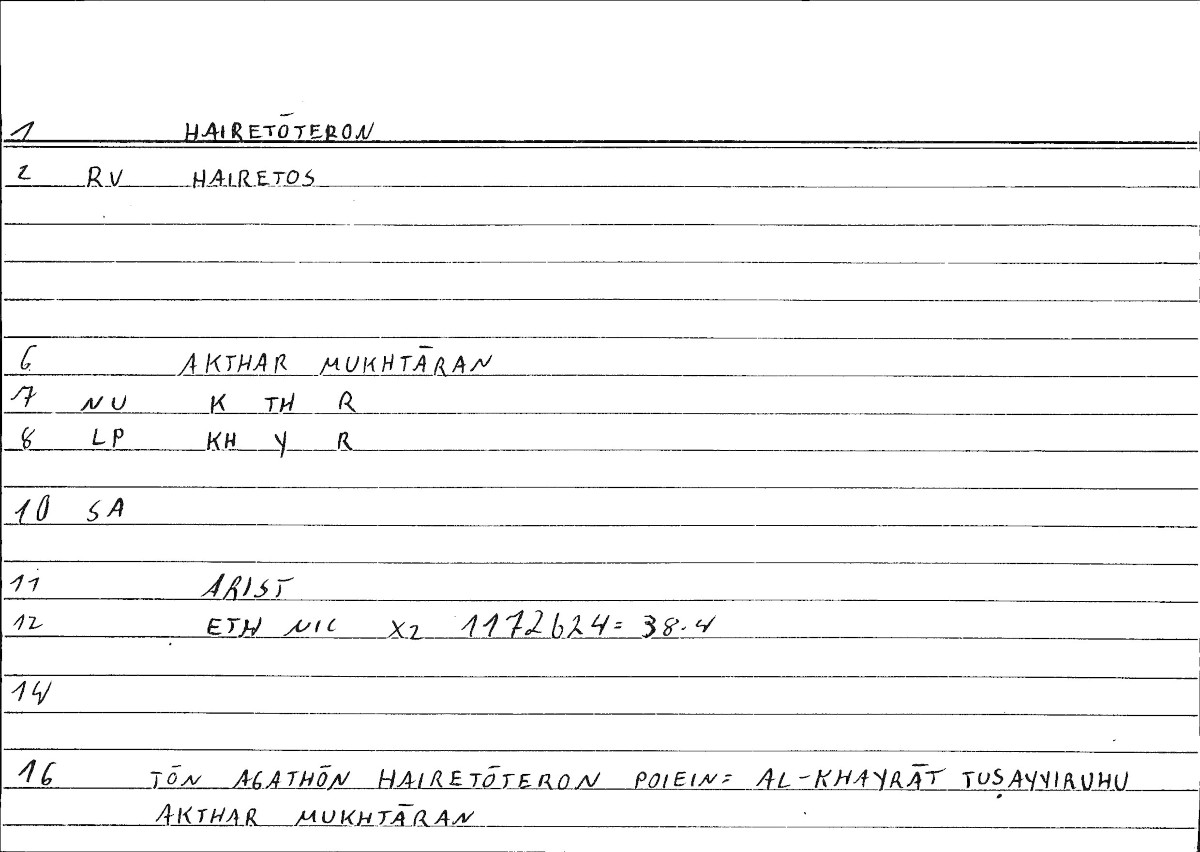 1 HAIRETŌTERON
2 RV HAIRETOS
6 AKTHAR MUKHTĀRAN
7 NU K TH R
8 LP KH Y R
10 SA
11 ARIST
12 ETH NIC X2 1172b24= 38.4
14
16 TŌN AGATHŌN HAIRETŌTERON POIEIN= AL-KHAYRĀT TUṢAYYIRUHU
AKTHAR MUKHTĀRAN